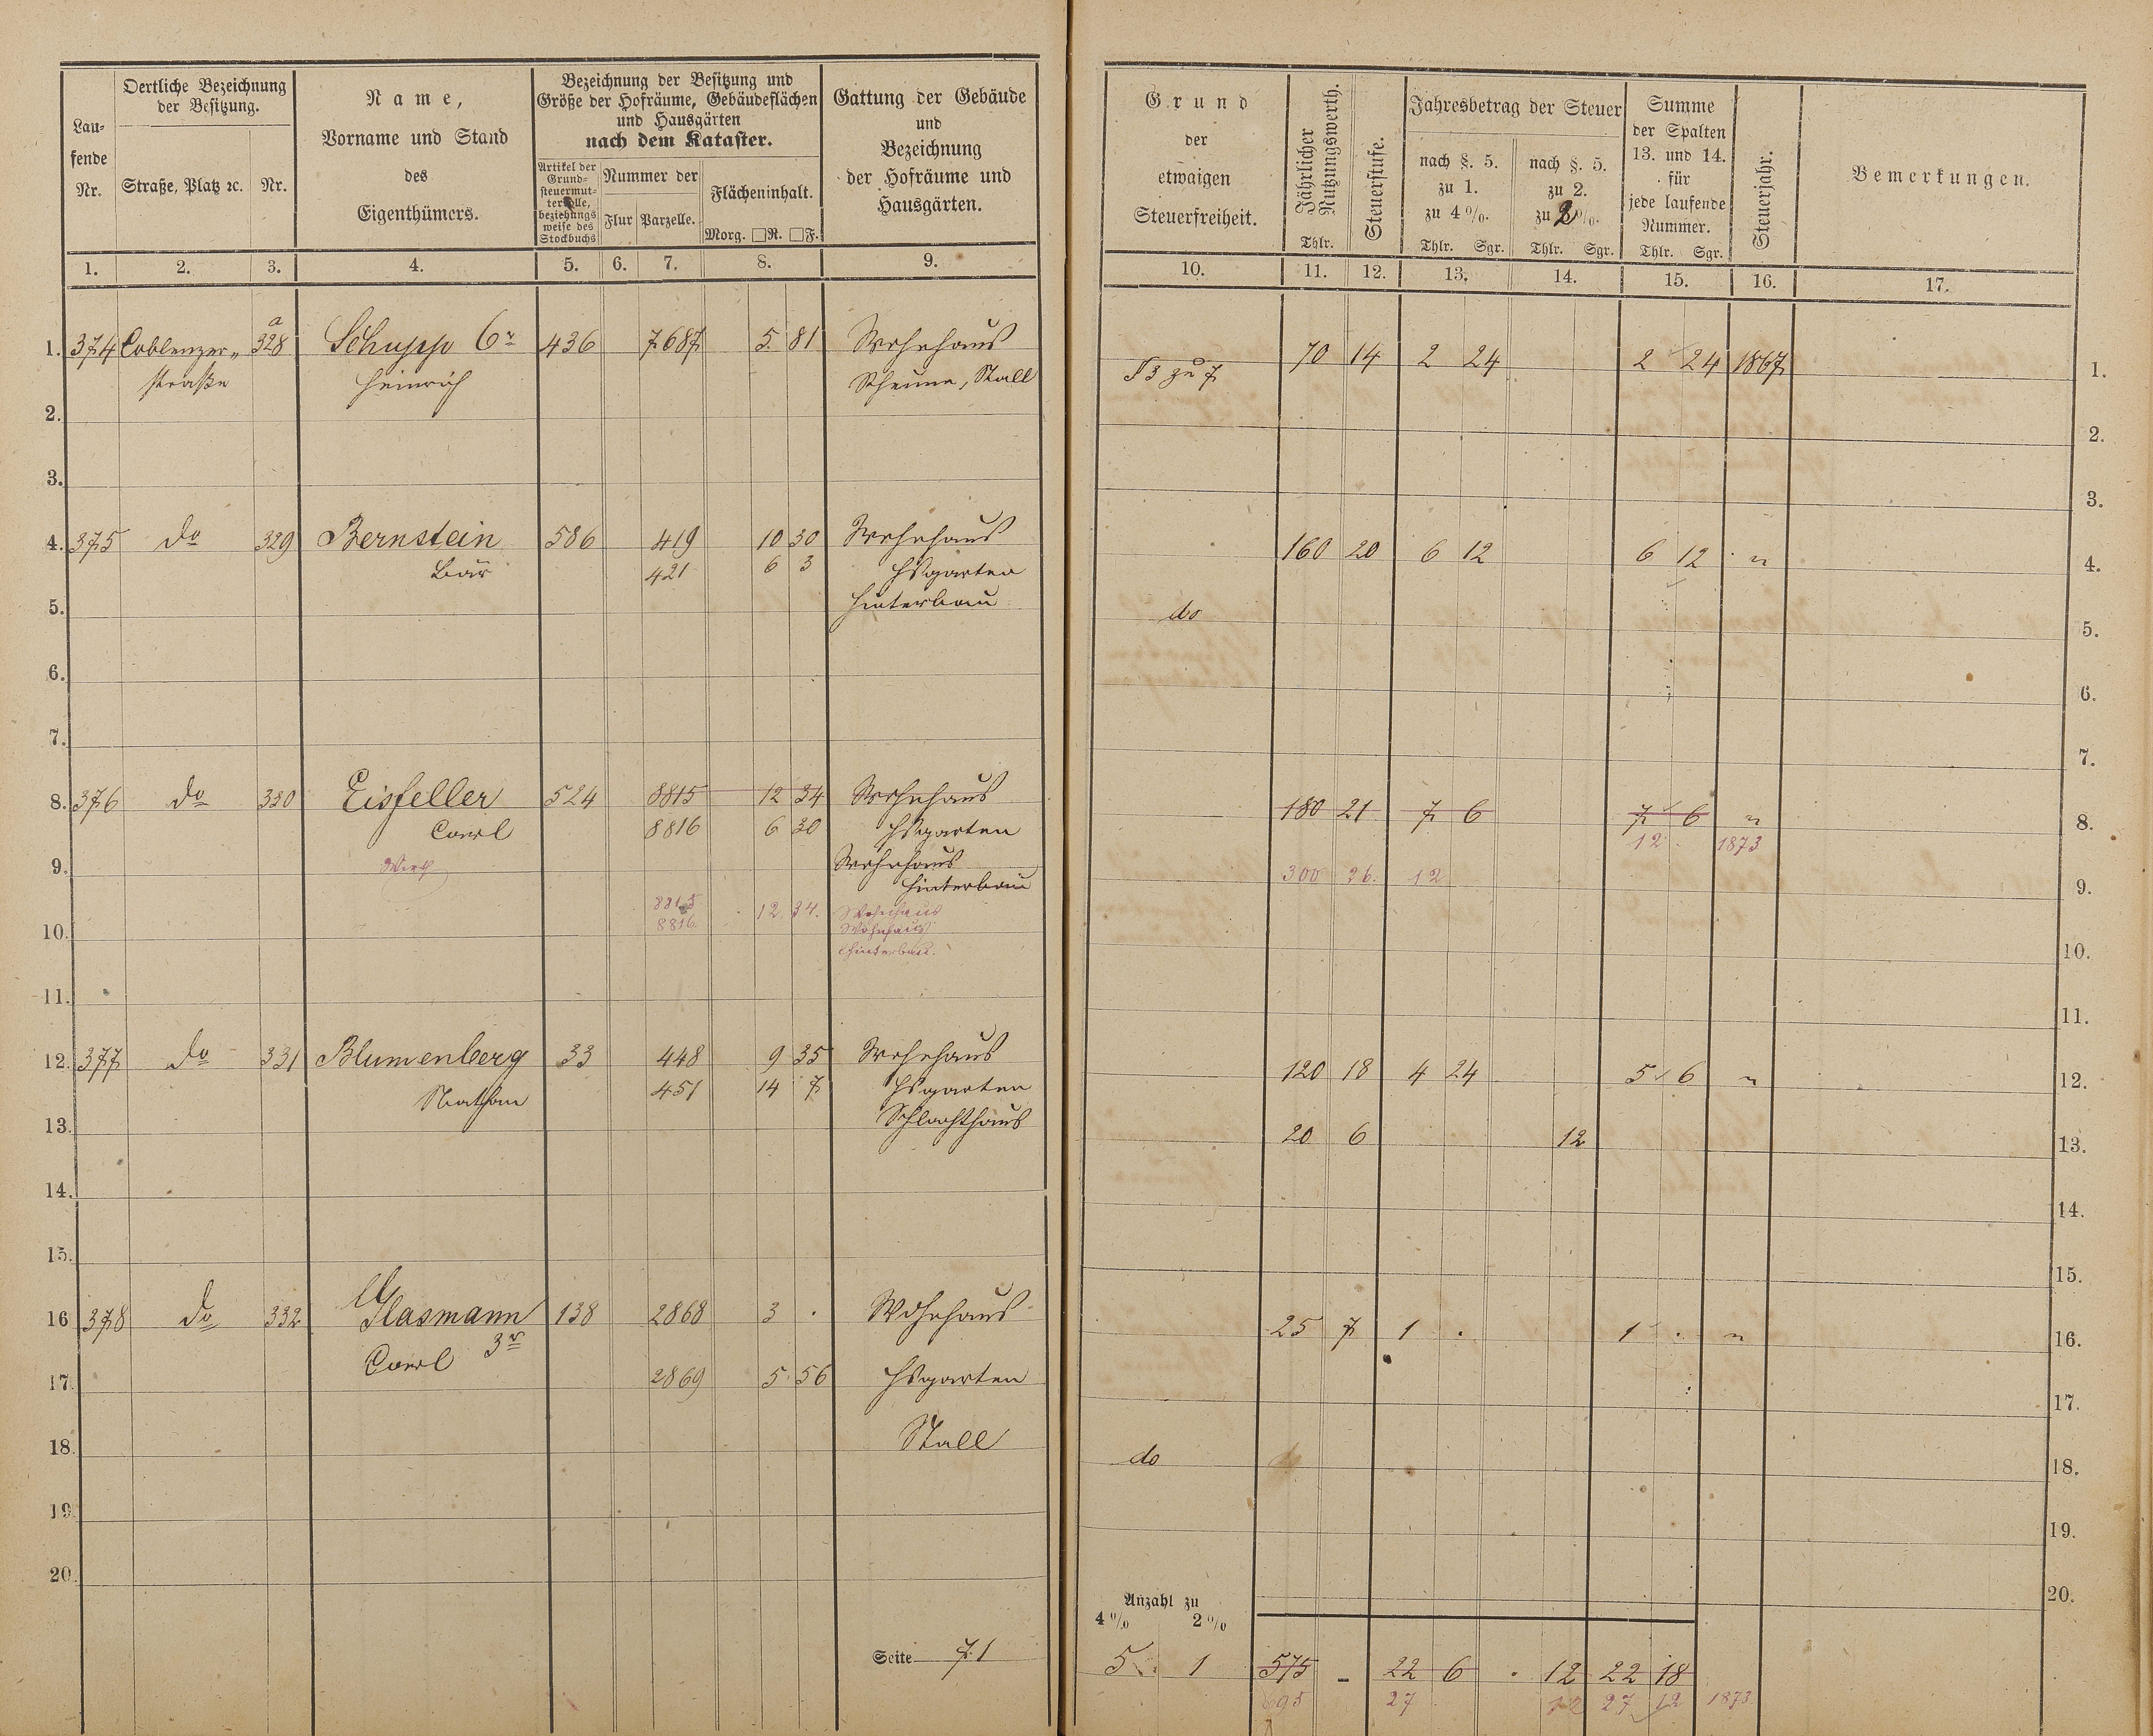 Laufende Nr.
Oertliche Bezeichnung der Besitzung.
Straße, Platz ꝛc.
Nr.
Name,
Vorname und Stand
des
Eigenthümers.
Bezeichnung der Besitzung und
Größe der Hofräume, Gebäudeflächen
und Hausgärten
nach dem Kataster.
Artikel der Grundsteuermutterrolle, beziehungsweise des Stockbuchs
Nummer der
Flur Parzelle.
Flächeninhalt.
Morg. □R. □F.
Gattung der Gebäude
und
Bezeichnung
der Hofräume und
Hausgärten.
Grund
der
etwaigen
Steuerfreiheit.
Jährlicher Nutzungswerth.
Thlr.
Steuerstufe.
Jahresbetrag der Steuer
nach §. 5. zu 1. zu 4 %.
Thlr. Sgr.
nach §. 5. zu 2. zu 2 %.
Thlr. Sgr.
Summe
der Spalten
13. und 14.
für
jede laufende
Nummer.
Thlr. Sgr.
Steuerjahr.
Bemerkungen.
1. 2. 3. 4. 5. 6. 7. 8. 9. 10. 11. 12. 13. 14. 15. 16. 17.
1. 374 Coblenzer- 328 a Schupp 6r 436 7687 5 81 Wohnhaus 70 14 2 24 2 24 1867 1.
straße Heinrich Scheune, Stall §3 zu 7
2. 2.
3. 3.
4. 375 do 329 Bernstein 586 419 10 30 Wohnhaus 160 20 6 12 6 12 " 4.
Bär 421 6 3 Hsgarten
5. Hinterbau do 5.
6. 6.
7. 7.
8. 376 do 330 Eisfeller 524 8815 12 34 Wohnhaus 180 21 7 6 7 6 " 8.
Carl 8816 6 30 Hsgarten 12 1873
9. Wohnhaus 300 26. 12 9.
Hinterbau
8815 12. 34. Wohnhaus
10. 8816. Wohnhaus 10.
Hinterbau.
11. 11.
12. 377 do 331 Blumenberg 33 448 9 35 Wohnhaus 120 18 4 24 5 6 " 12.
Nathan 451 14 7 Hsgarten
13. Schlachthaus 20 6 12 13.
14. 14.
15. 15.
16 378 do 332 Glasmann 138 2868 3 . Wohnhaus 25 7 1 . 1 . " 16.
Carl 3r
17. 2869 5 56 Hsgarten 17.
18. Stall do 18.
19. 19.
20 20.
Anzahl zu
4 % 2 %
Seite 71
5 1 575 - 22 6 . 12 22 18
695 27 12 27 12 1873